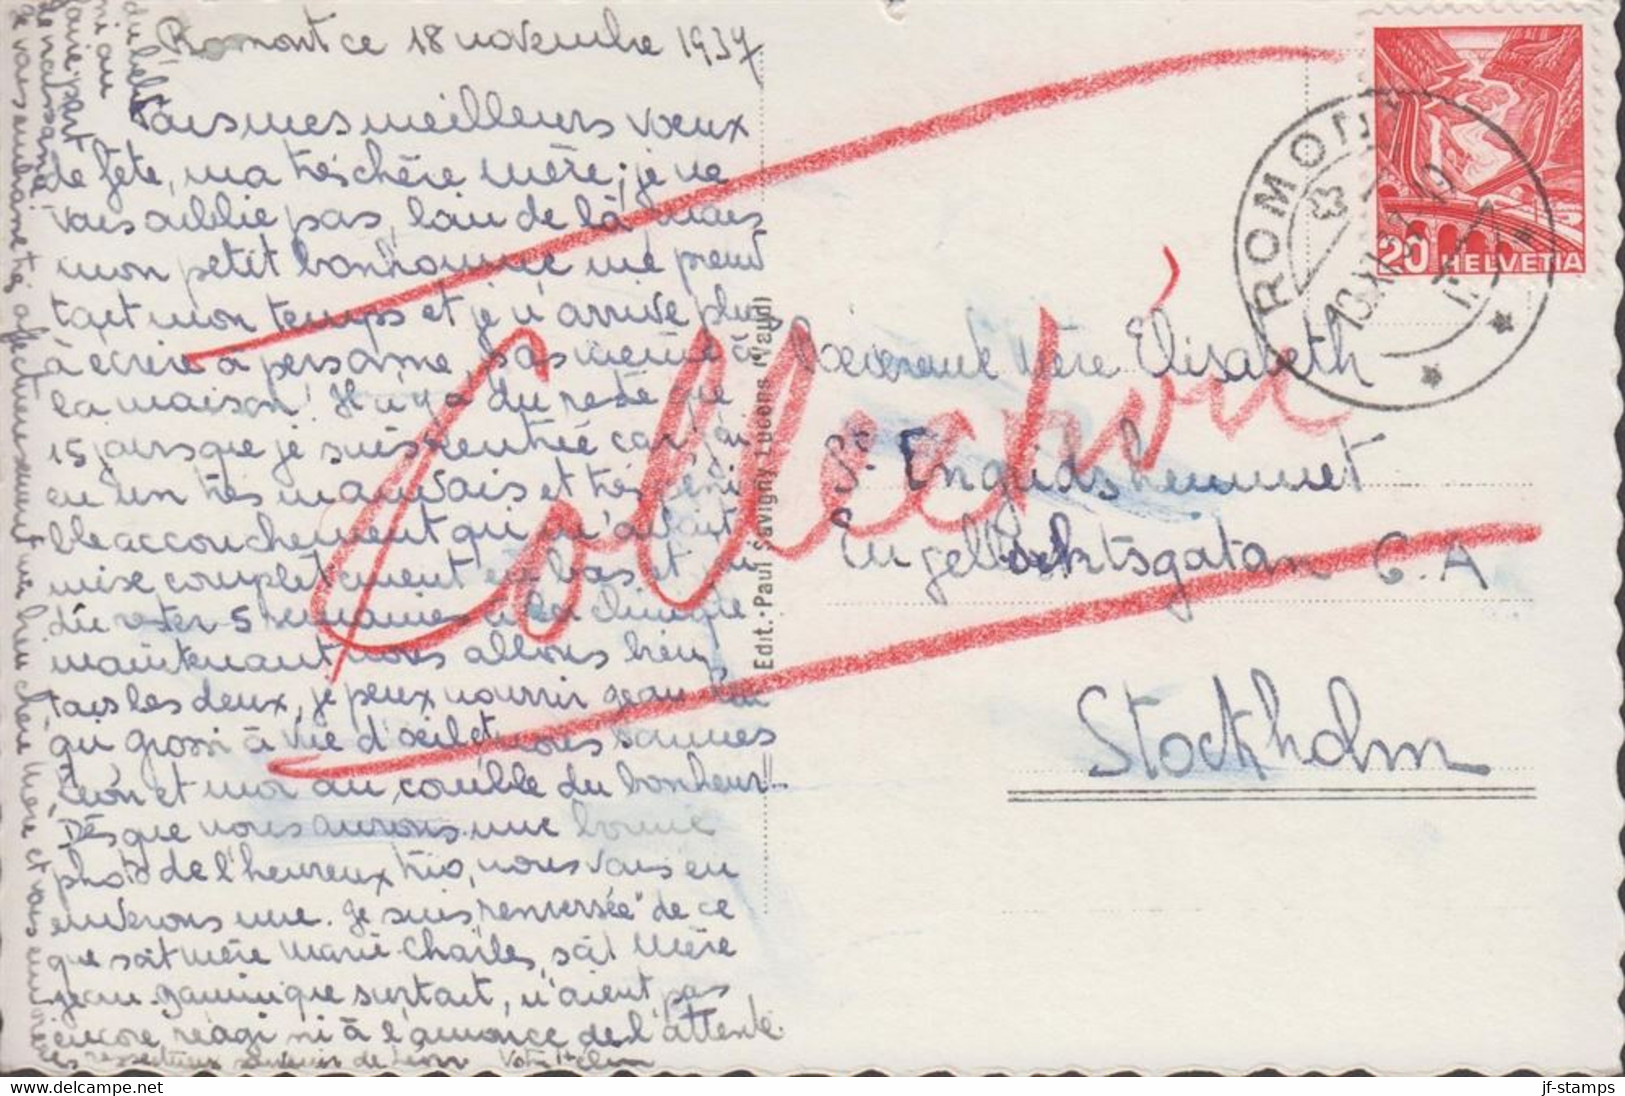 Romont ce 18 novembre 1937
Tous mes meilleurs voeux
de fête, ma très chère Mère; je ne
vous oublie pas, loin de là, mais
mon petit bonhomme me prend
tout mon temps et je n'arrive plus
à écrire à personne, pas même à
la maison! Il n'y a du reste que
15 jours que je suis rentrée car j'ai
eu un très mauvais et très péni
ble accouchement qui m'avait
mise complètement à bas et j'ai
dû rester 5 semaines à la clinique
maintenant nous allons bien
tous les deux, je peux nourrir Jean
qui grossi à vue d'oeil et nous sommes
Léon et moi au comble du bonheur.
Dès que nous aurons une bonne
photo de l'heureux trio, nous vous en
enverrons une. Je suis "renversée" de ce
que soit Mère Marie Charles, soit Mère
Jean-Dominique surtout, n'aient pas
encore réagi ni à l'annonce de l'attente
du bébé
ni au
faire-part
de naissance
Je vous embrasse très affectueusement ma bien chère Mère et vous
respectueux de Léon Votre Hélène
Edit.: Paul Savigny Lucens (Vaud)
Révérende Mère Elisabeth
St Engridshemmet
Engelbrektsgatan 6.A
Stockholm
Collection
ROMONT
20 HELVETIA
jf-stamps